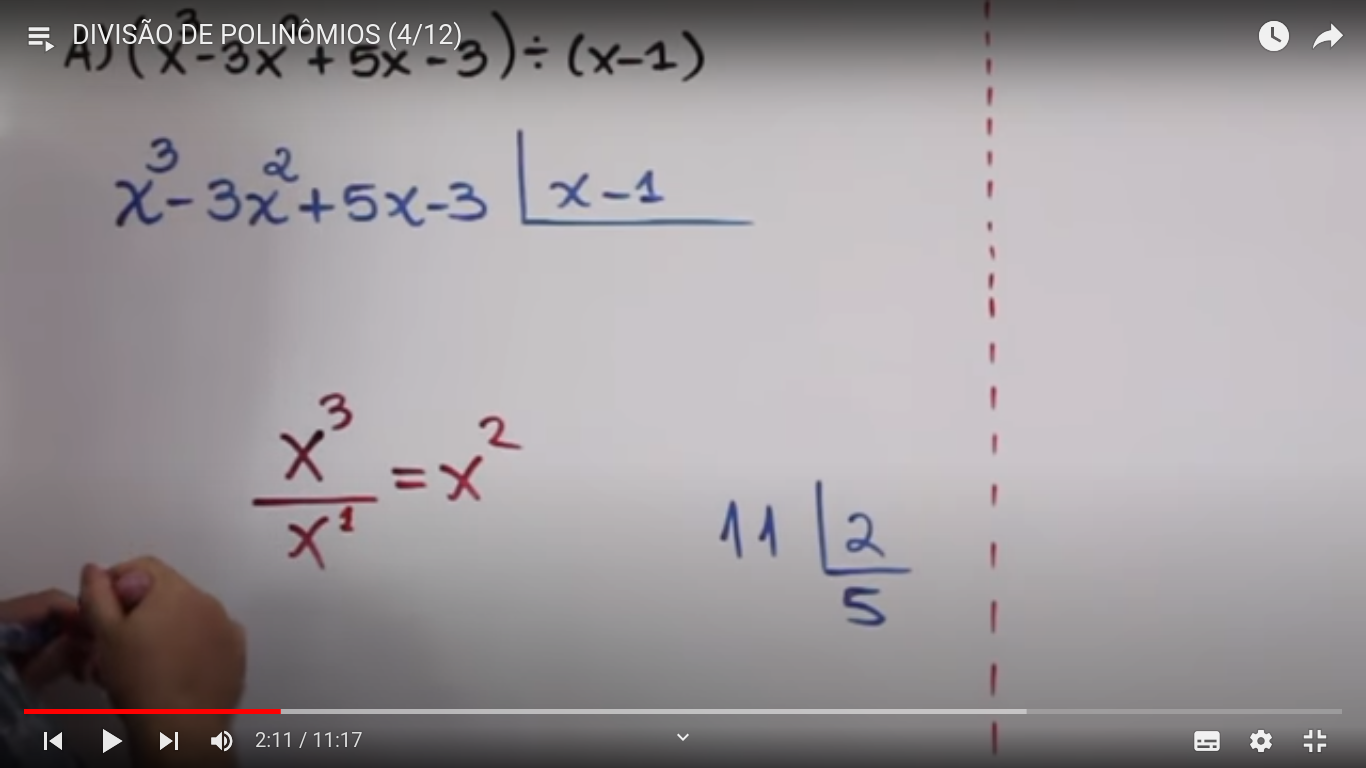 DIVISÃO DE POLINÔMIOS (4/12)
A) (x³-3x²+5x-3)÷(x-1)
x³-3x²+5x-3 x-1
x³
= x²
x¹
11 2
5
2:11 / 11:17